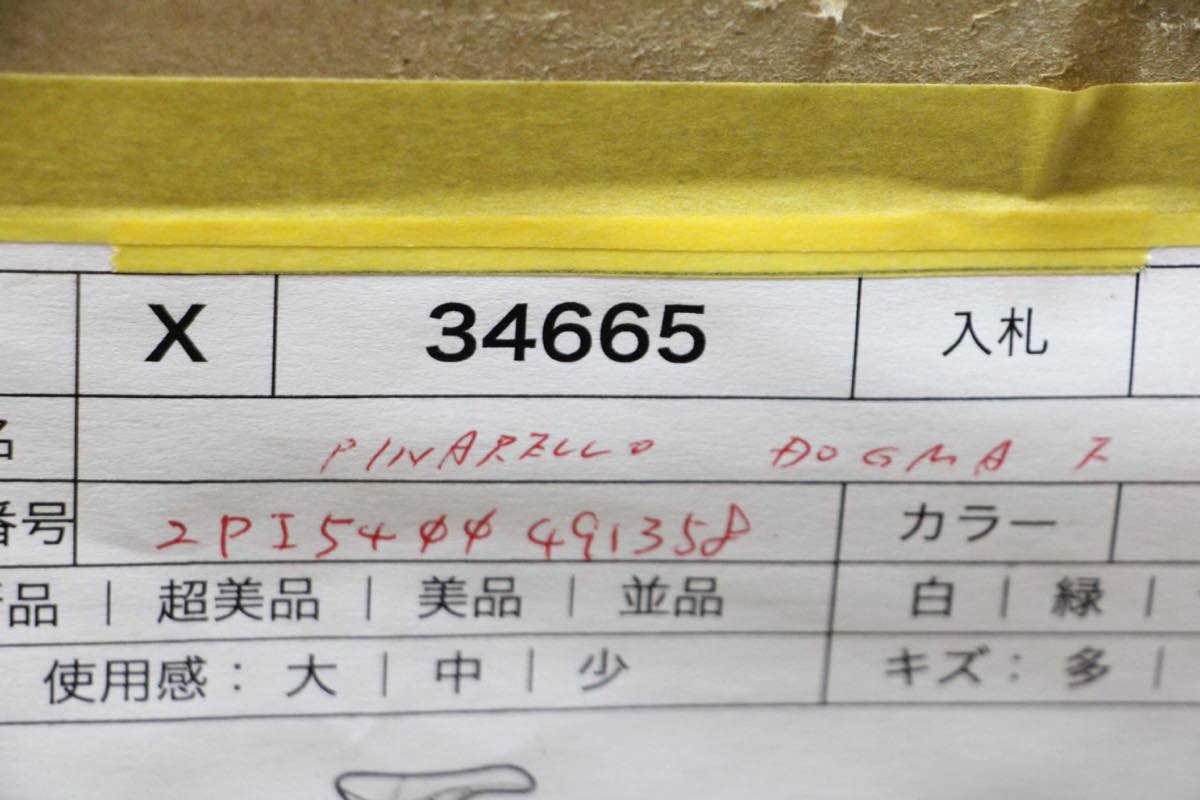 X 34665 入札
名 PINARELLO DOGMA F
番号 2PI5400491358 カラー
品 | 超美品 | 美品 | 並品 白 | 緑 |
使用感： 大 | 中 | 少 キズ： 多 |